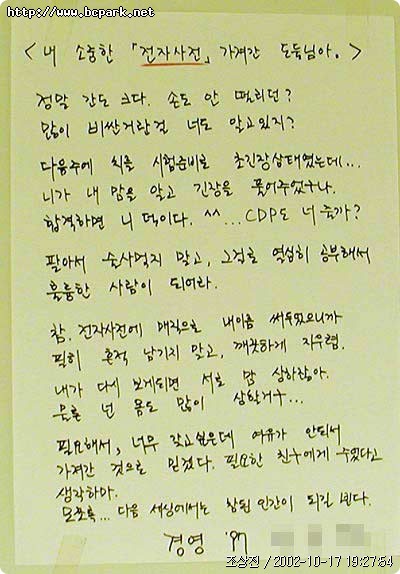 http://www.bcpark.net
< 내 소중한 「전자사전」 가져간 도둑님아. >
정말 간도 크다. 손도 안 떨리던?
많이 비싼거란걸 너도 알고있지?
다음주에 치를 시험준비로 초긴장상태였는데...
니가 내 맘을 알고 긴장을 풀어주었구나.
합격하면 니 덕이다. ^^ ...CDP도 너 줄까?
팔아서 술사먹지 말고, 그걸로 열심히 공부해서
훌륭한 사람이 되어라.
참. 전자사전에 매직으로 내이름 써두었으니까
필히 흔적 남기지 말고, 깨끗하게 지우렴.
내가 다시 보게되면 서로 맘 상하잖아.
물론 넌 몸도 많이 상할거구...
필요해서, 너무 갖고싶은데 여유가 안되서
가져간 것으로 믿겠다. 필요한 친구에게 주었다고
생각하마.
모쪼록... 다음 세상에서는 참된 인간이 되길 빈다.
경영 '97
조상진 / 2002-10-17 19:27:54